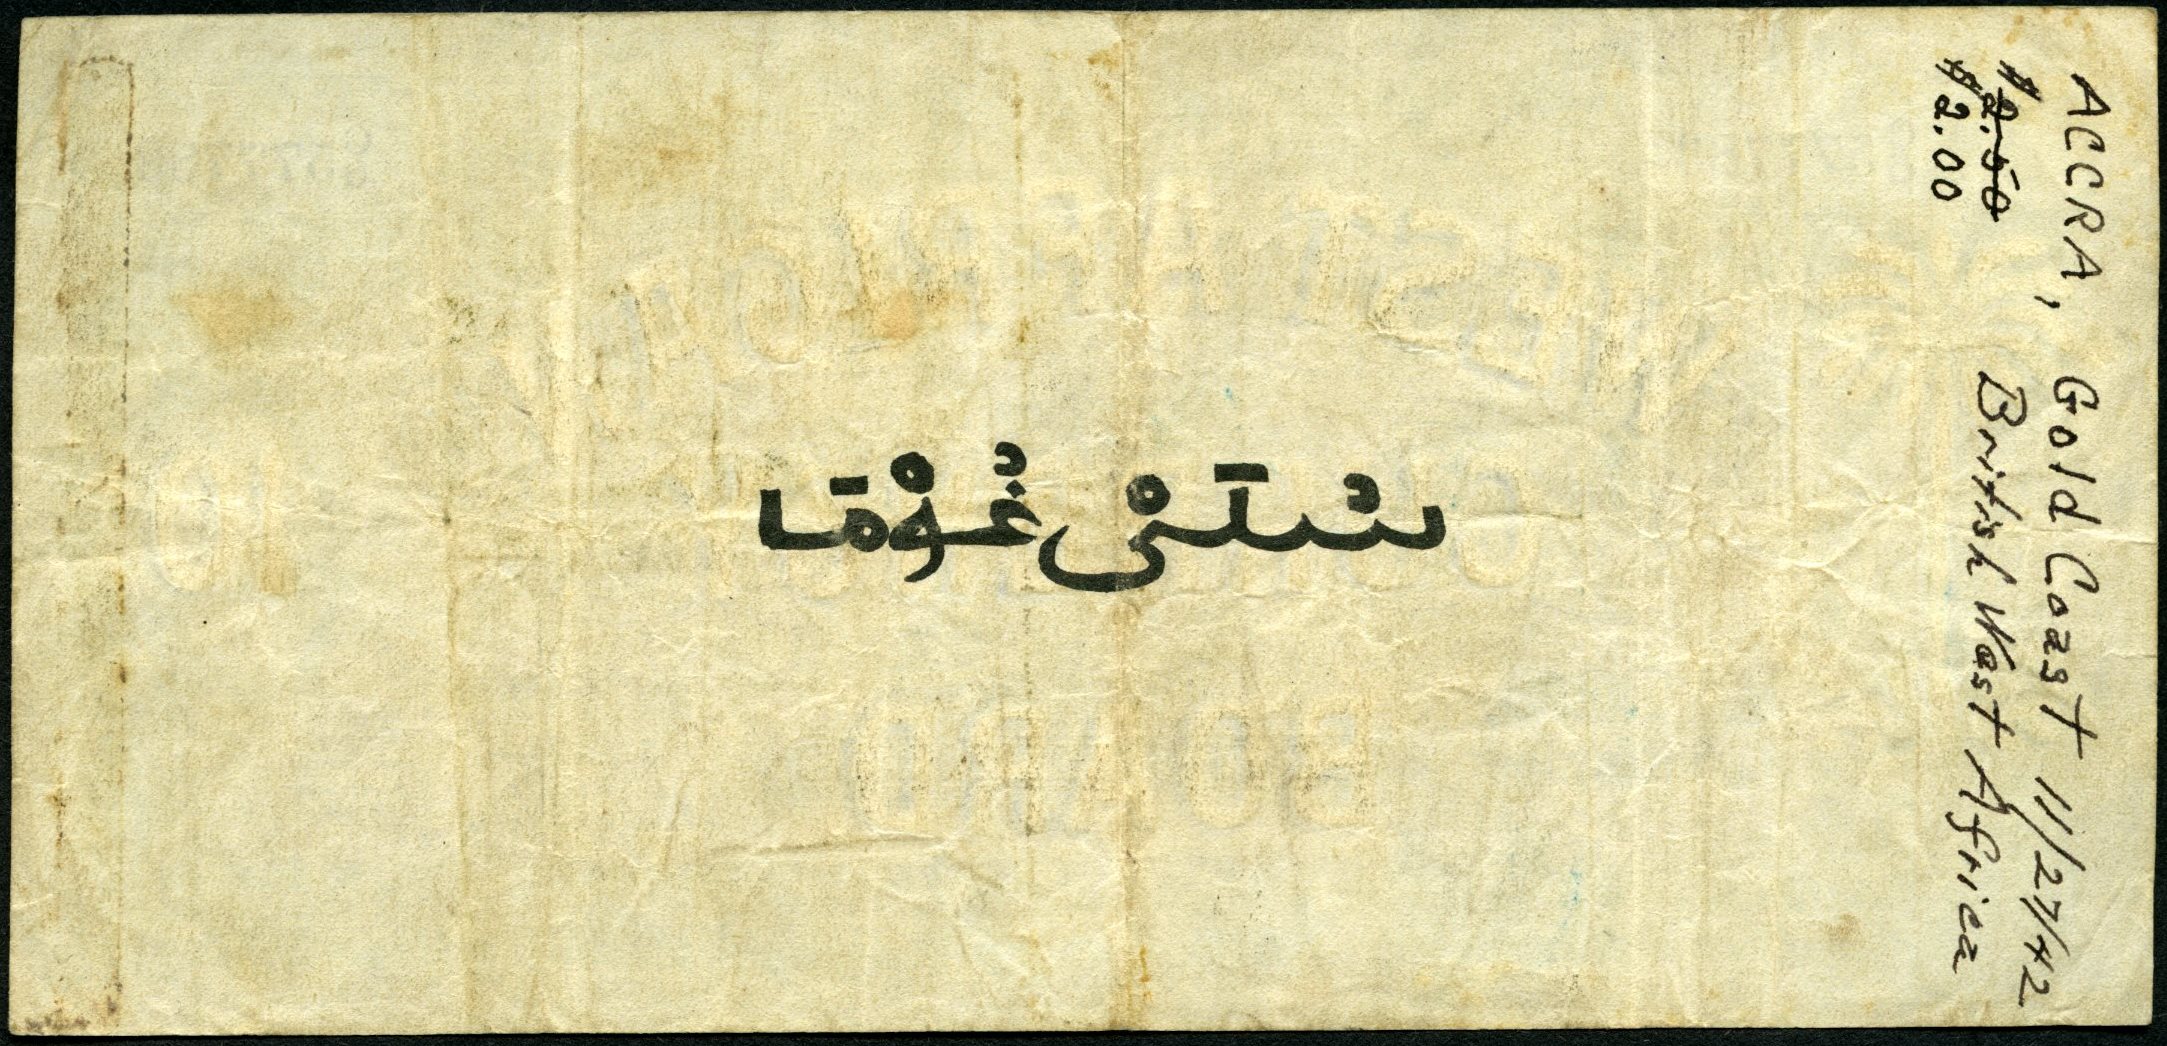 سُلَىْ غُوْمَا
ACCRA, Gold Coast 11/27/42
British West Africa
$2.50
$2.00